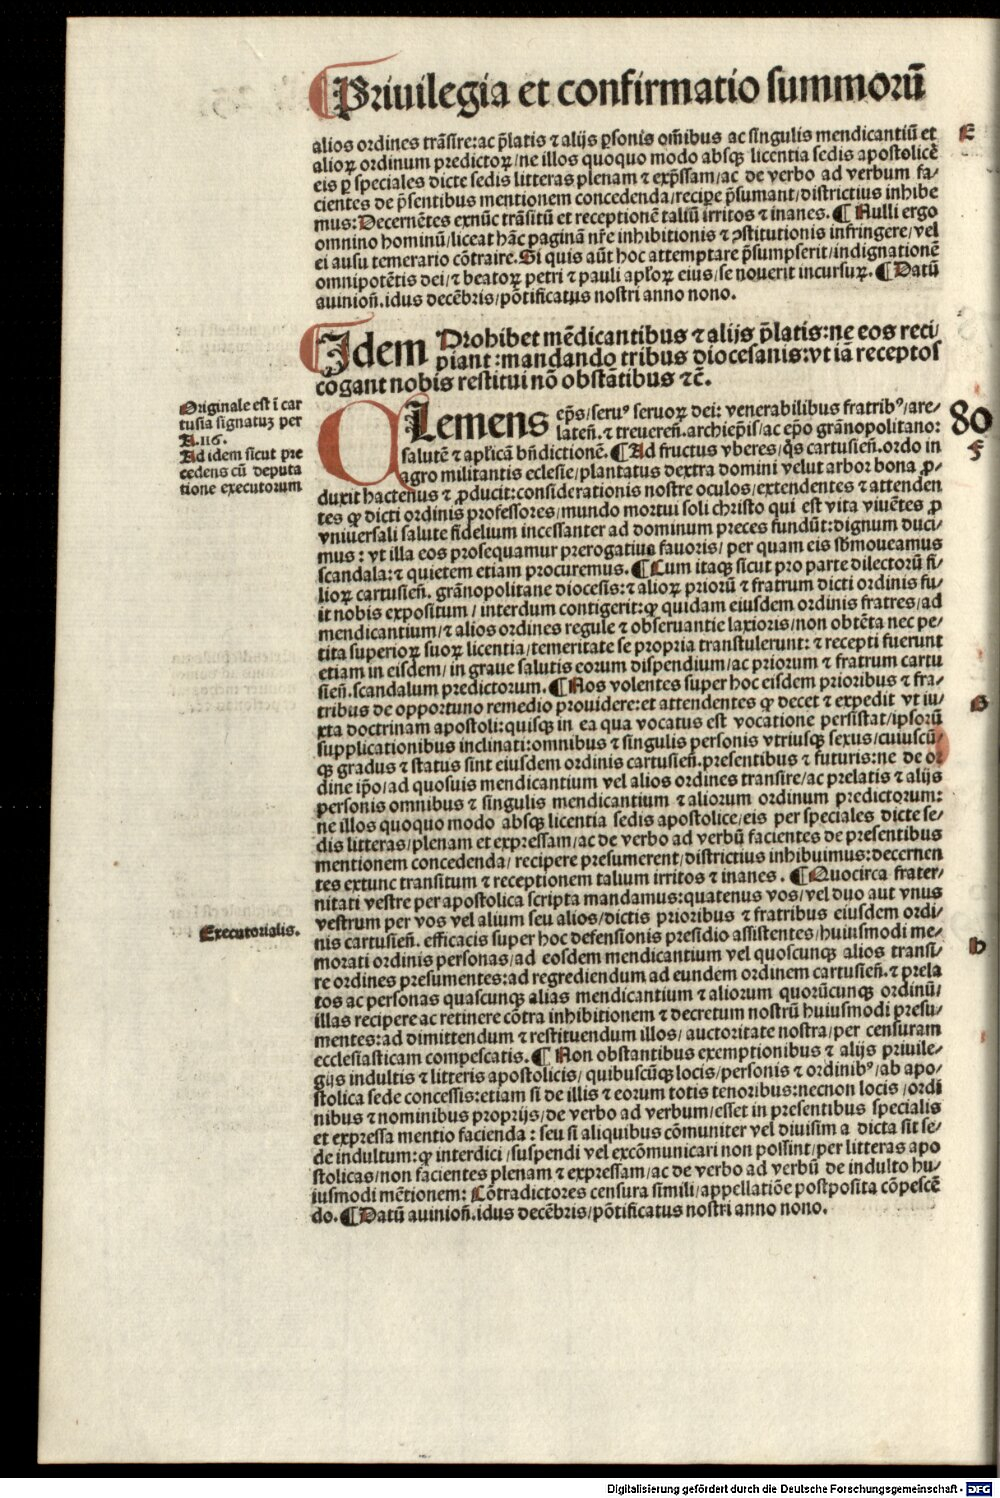 ¶Priuilegia et confirmatio summorū
alios ordines trāsire:ac p̄latis ⁊ alijs ꝑsonis om̄ibus ac singulis mendicantiū et
alioꝝ ordinum predictoꝝ/ne illos quoquo modo absqꝫ licentia sedis apostolicē
eis ꝑ speciales dicte sedis litteras plenam ⁊ exp̄ssam/ac de verbo ad verbum fa⸗
cientes de p̄sentibus mentionem concedenda/recipe p̄sumant/districtius inhibe
mus:Decernētes exnūc trāsitū et receptionē taliū irritos ⁊ inanes. ¶ Nulli ergo
omnino hominū/liceat hāc paginā nr̄e inhibitionis ⁊ ꝯstitutionis infringere/vel
ei ausu temerario cōtraire. Si quis aūt hoc attemptare p̄sumpserit/indignationē
omnipotētis dei/⁊ beatoꝝ petri ⁊ pauli apl̄oꝝ eius/se nouerit incursuꝝ. ¶Datū
auinion̄.idus decēbris/pōtificatus nostri anno nono.
¶Idem Prohibet mēdicantibus ⁊ alijs p̄latis:ne eos reci⸗
piant:mandando tribus diocesanis:vt iā receptos
cogant nobis restitui nō obstātibus ⁊c̄.
Originale est ī car
tusia signatuꝫ per
A.116.
Ad idem sicut pre
cedens cū deputa
tione executorum
CLemens ep̄s/seruꝰ seruoꝝ dei: venerabilibus fratribꝰ/are⸗
laten̄.⁊ treueren̄.archiep̄is/ac ep̄o grānopolitano:
salutē ⁊ apl̄icā bn̄dictionē. ¶Ad fructus vberes/q̄s cartusien̄.ordo in
agro militantis eclesie/plantatus dextra domini velut arbor bona ꝓ⸗
duxit hactenus ⁊ ꝓducit:considerationis nostre oculos/extendentes ⁊ attenden
tes ꝙ dicti ordinis professores/mundo mortui soli christo qui est vita viuētes ꝓ
vniuersali salute fidelium incessanter ad dominum preces fundūt:dignum duci⸗
mus: vt illa eos prosequamur prerogatiua fauoris/ per quam eis sb̄moueamus
scandala:⁊ quietem etiam procuremus. ¶Cum itaqꝫ sicut pro parte dilectorū fi⸗
lioꝝ cartusien̄. grānopolitane diocesis:⁊ alioꝝ priorū ⁊ fratrum dicti ordinis fu⸗
it nobis expositum/ interdum contigerit:ꝙ quidam eiusdem ordinis fratres/ad
mendicantium/⁊ alios ordines regule ⁊ obseruantie laxioris/non obtēta nec pe⸗
tita superioꝝ suoꝝ licentia/temeritate se propria transtulerunt: ⁊ recepti fuerunt
etiam in eisdem/in graue salutis eorum dispendium/ac priorum ⁊ fratrum cartu
sien̄.scandalum predictorum. ¶Nos volentes super hoc eisdem prioribus ⁊ fra⸗
tribus de opportuno remedio prouidere:et attendentes ꝙ decet ⁊ expedit vt iu⸗
xta doctrinam apostoli:quisqꝫ in ea qua vocatus est vocatione persistat/ipsorū
supplicationibus inclinati:omnibus ⁊ singulis personis vtriusqꝫ sexus/cuiuscū⸗
qꝫ gradus ⁊ status sint eiusdem ordinis cartusien̄.presentibus ⁊ futuris:ne de or
dine ip̄o/ad quosuis mendicantium vel alios ordines transire/ac prelatis ⁊ alijs
personis omnibus ⁊ singulis mendicantium ⁊ aliorum ordinum predictorum:
ne illos quoquo modo absqꝫ licentia sedis apostolice/eis per speciales dicte se⸗
dis litteras/plenam et expressam/ac de verbo ad verbū facientes de presentibus
mentionem concedenda/ recipere presumerent/districtius inhibuimus:decernen
tes extunc transitum ⁊ receptionem talium irritos ⁊ inanes. ¶Quocirca frater⸗
nitati vestre per apostolica scripta mandamus:quatenus vos/vel duo aut vnus
vestrum per vos vel alium seu alios/dictis prioribus ⁊ fratribus eiusdem ordi⸗
nis cartusien̄. efficacis super hoc defensionis presidio assistentes/huiusmodi me⸗
morati ordinis personas/ad eosdem mendicantium vel quoscunqꝫ alios transi⸗
re ordines presumentes:ad regrediendum ad eundem ordinem cartusien̄.⁊ prela
tos ac personas quascunqꝫ alias mendicantium ⁊ aliorum quorūcunqꝫ ordinū/
illas recipere ac retinere cōtra inhibitionem ⁊ decretum nostrū huiusmodi presu⸗
mentes:ad dimittendum ⁊ restituendum illos/ auctoritate nostra/per censuram
ecclesiasticam compescatis. ¶ Non obstantibus exemptionibus ⁊ alijs priuile⸗
gijs indultis ⁊ litteris apostolicis/ quibuscūqꝫ locis/personis ⁊ ordinibꝰ/ab apo⸗
stolica sede concessis:etiam si de illis ⁊ eorum totis tenoribus:necnon locis/ordi
nibus ⁊ nominibus proprijs/de verbo ad verbum/esset in presentibus specialis
et expressa mentio facienda: seu si aliquibus cōmuniter vel diuisim a dicta sit se⸗
de indultum:ꝙ interdici/suspendi vel excōmunicari non possint/per litteras apo
stolicas/non facientes plenam ⁊ expressam/ac de verbo ad verbū de indulto hu⸗
iusmodi mētionem: Cōtradictores censura simili/appellatiōe postposita cōpescē
do. ¶Datū auinion̄.idus decēbris/pōtificatus nostri anno nono.
Executorialis.
E
80
F
B
b
Digitalisierung gefördert durch die Deutsche Forschungsgemeinschaft - DFG